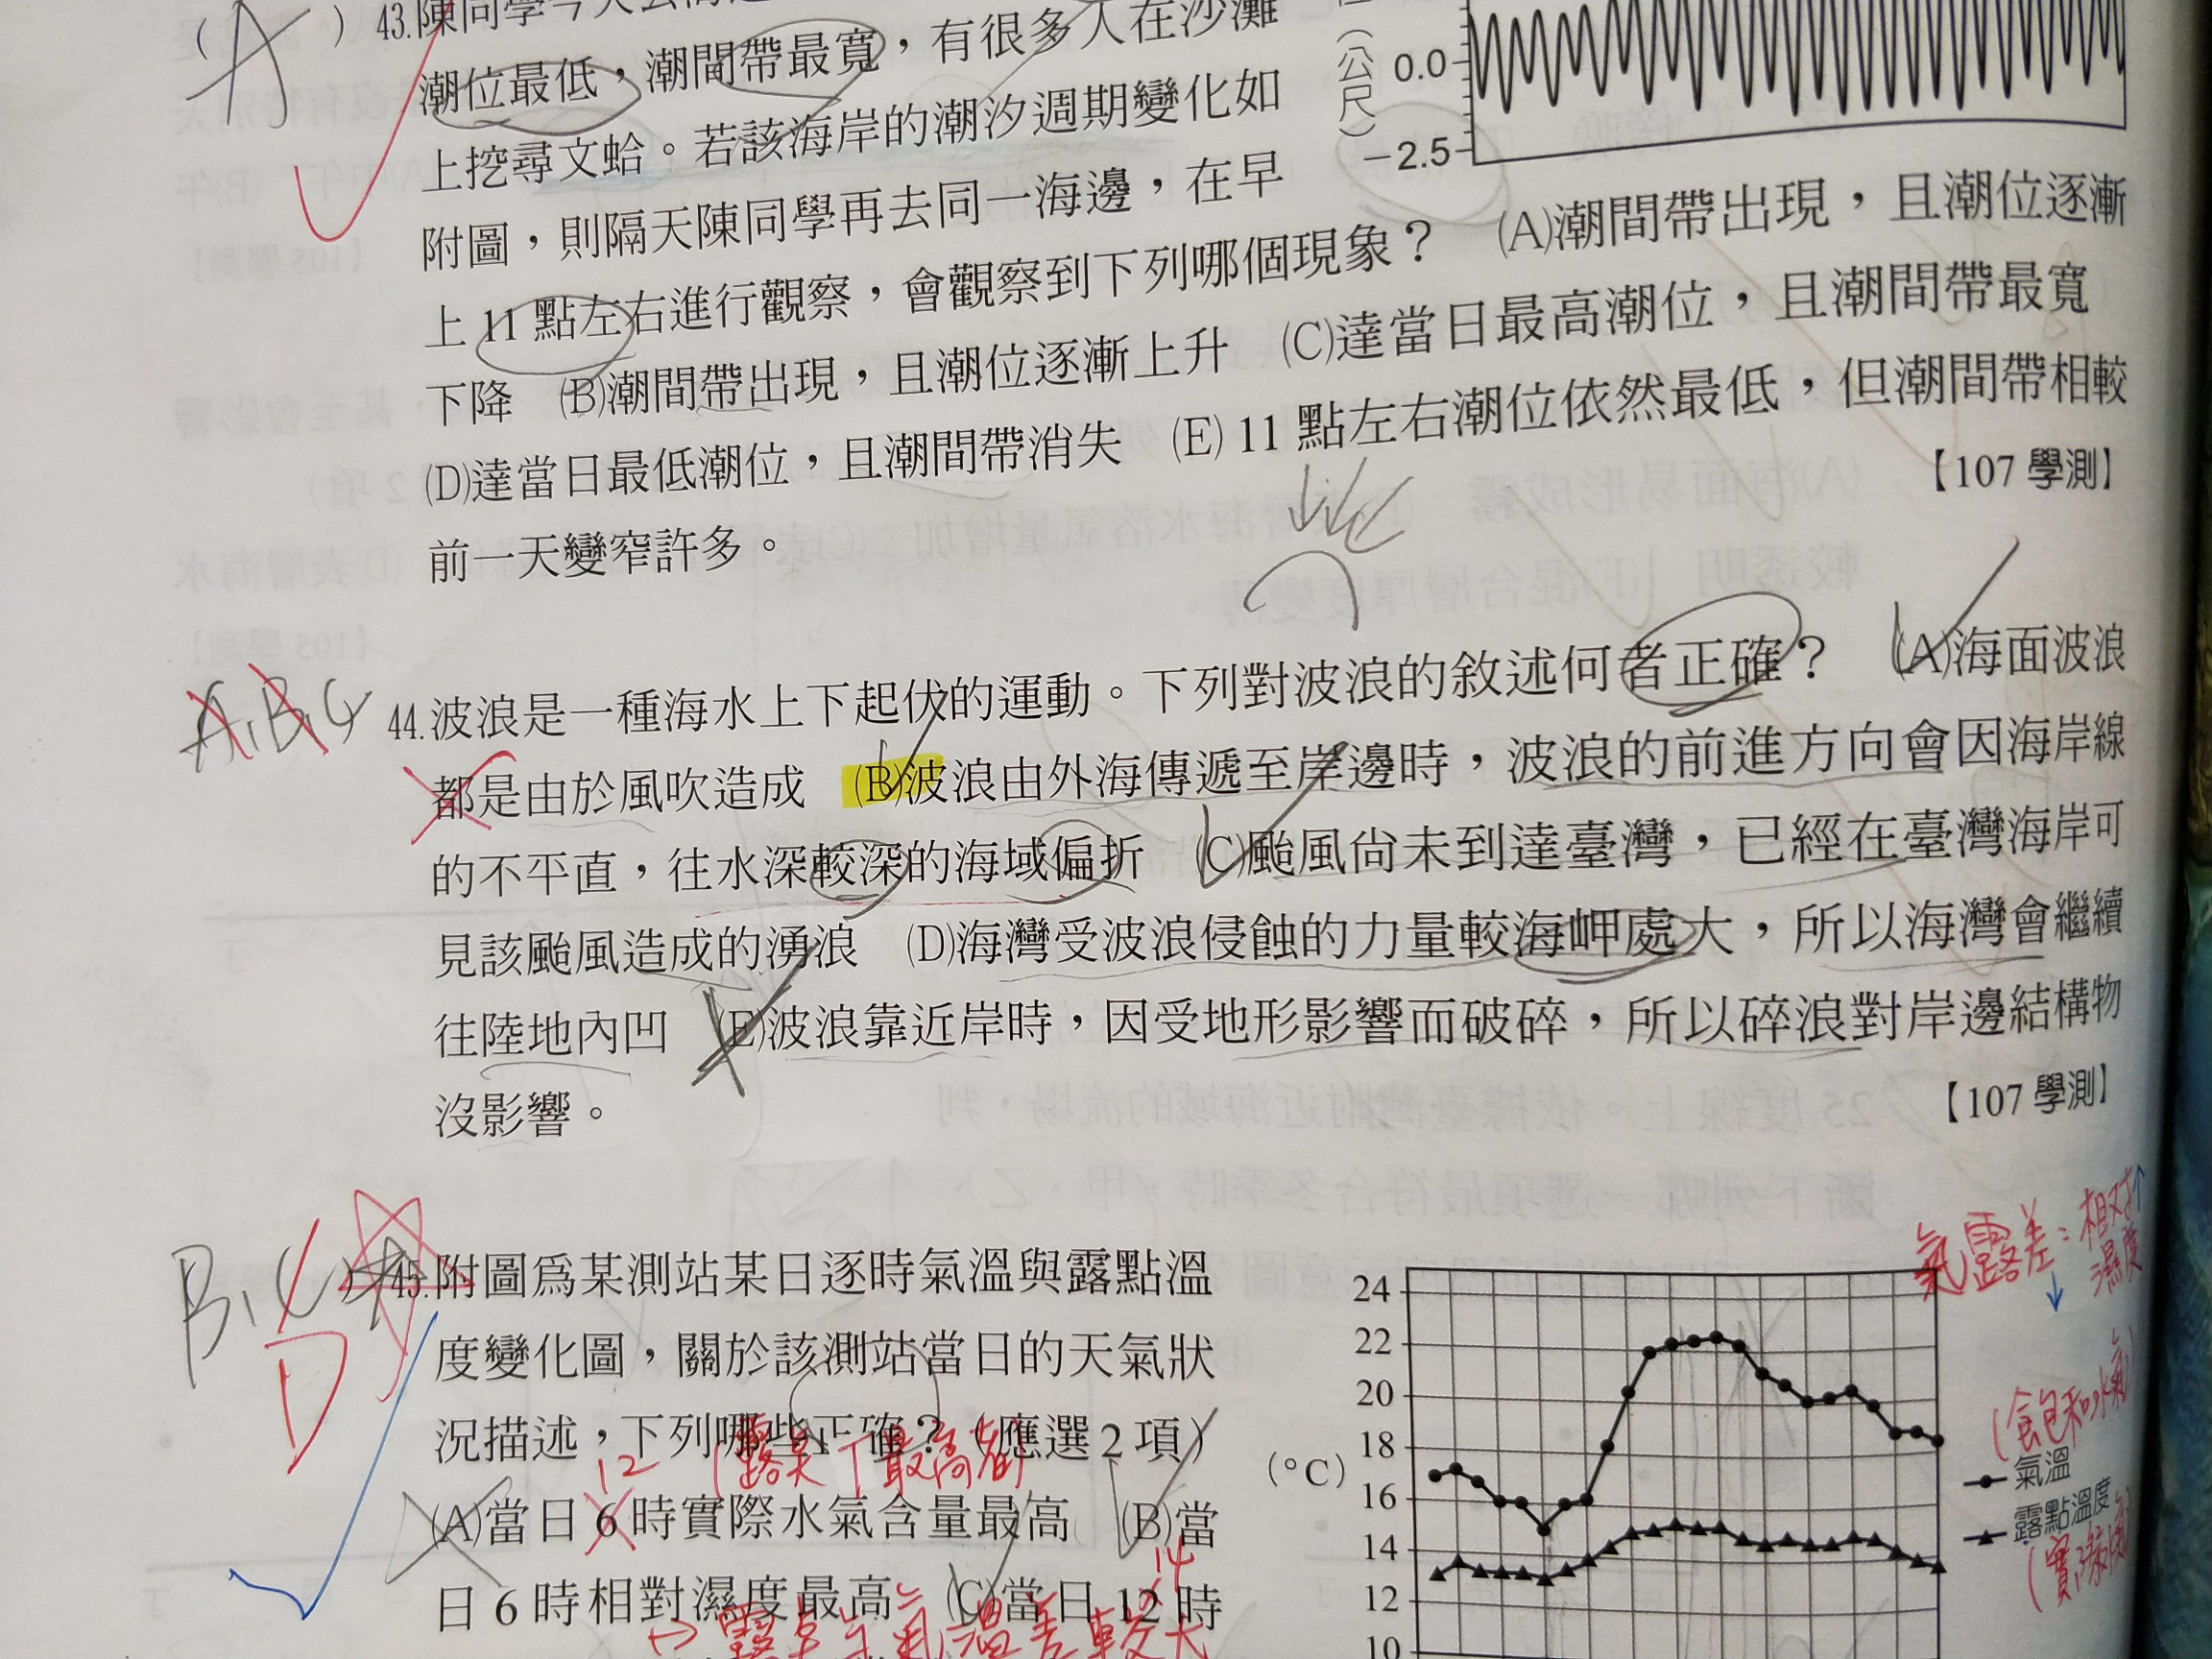 （A）43.陳同學今天去
潮位最低，潮間帶最寬，有很多人在沙灘
上挖尋文蛤。若該海岸的潮汐週期變化如
附圖，則隔天陳同學再去同一海邊，在早
上 11 點左右進行觀察，會觀察到下列哪個現象？　(A)潮間帶出現，且潮位逐漸
下降　(B)潮間帶出現，且潮位逐漸上升　(C)達當日最高潮位，且潮間帶最寬
(D)達當日最低潮位，且潮間帶消失　(E) 11 點左右潮位依然最低，但潮間帶相較
前一天變窄許多。
【107 學測】
位（公尺）
0.0
−2.5
A,B,C
44.波浪是一種海水上下起伏的運動。下列對波浪的敘述何者正確？　(A)海面波浪
都是由於風吹造成　(B)波浪由外海傳遞至岸邊時，波浪的前進方向會因海岸線
的不平直，往水深較深的海域偏折　(C)颱風尚未到達臺灣，已經在臺灣海岸可
見該颱風造成的湧浪　(D)海灣受波浪侵蝕的力量較海岬處大，所以海灣會繼續
往陸地內凹　(E)波浪靠近岸時，因受地形影響而破碎，所以碎浪對岸邊結構物
沒影響。
【107 學測】
B,C
D
）45.附圖為某測站某日逐時氣溫與露點溫
度變化圖，關於該測站當日的天氣狀
況描述，下列哪些正確？（應選 2 項）
12
(A)當日 6 時實際水氣含量最高　(B)當
14
日 6 時相對濕度最高　(C)當日 12 時
→露點與氣溫差較大
氣露差：相對濕度
24
22
20
18
(°C)
16
14
12
10
(飽和水氣)
氣溫
露點溫度